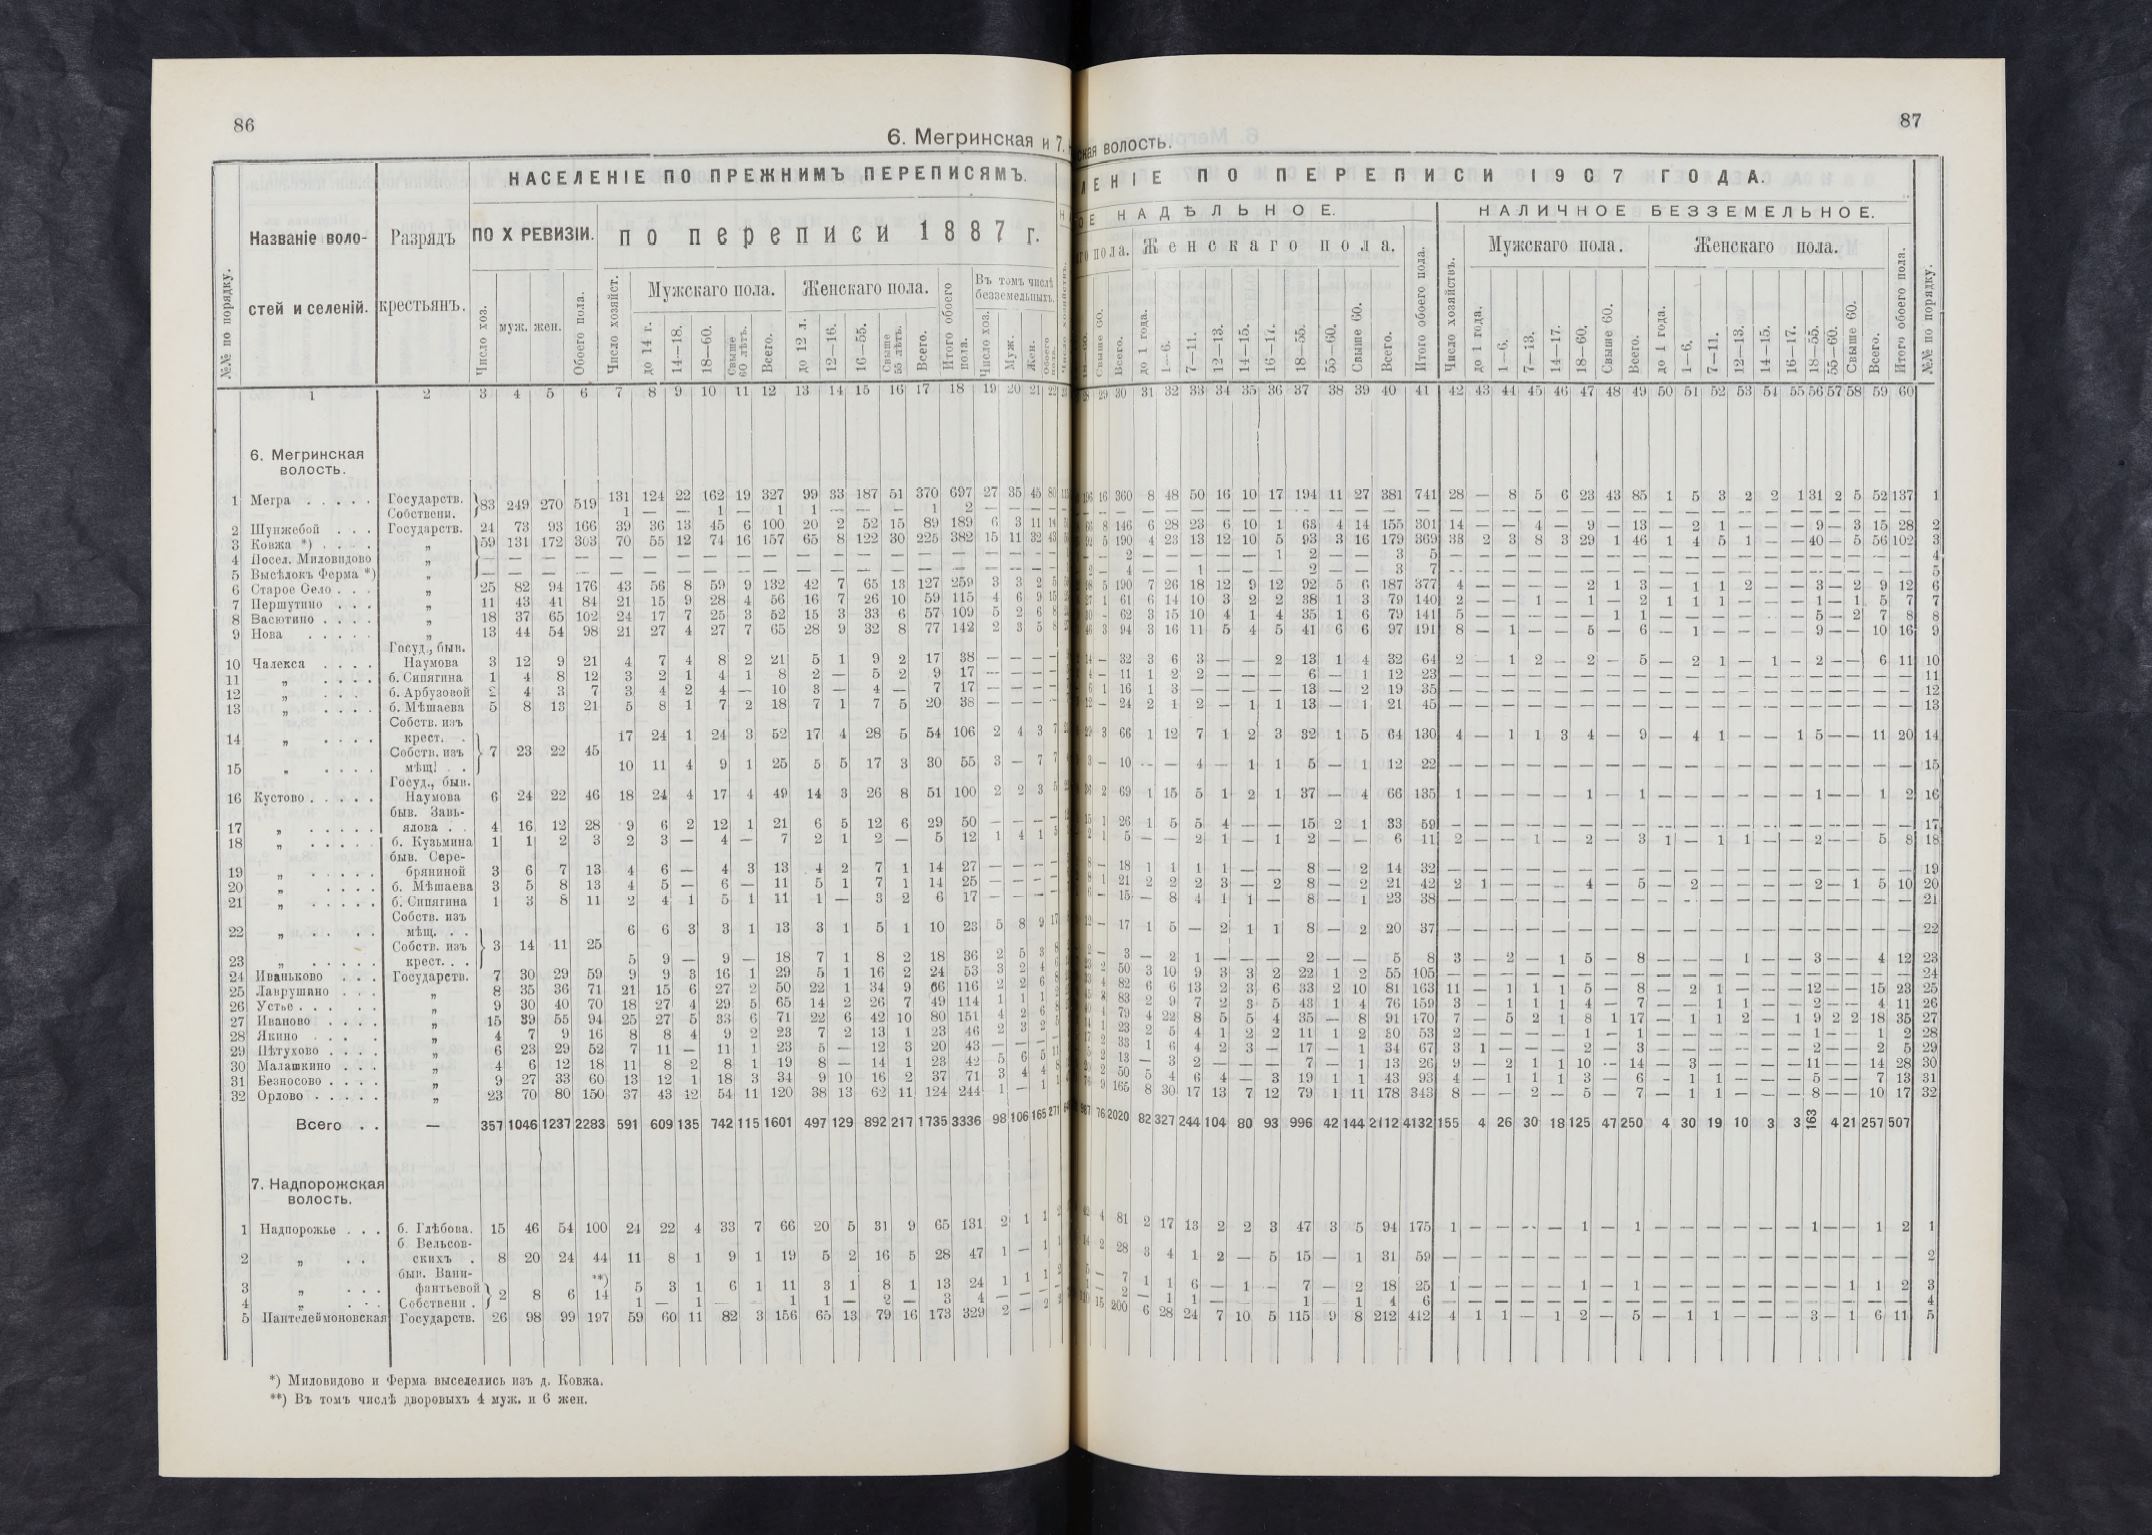 86
6. Мегринская и 7.
НАСЕЛЕНІЕ ПО ПРЕЖНИМЪ ПЕРЕПИСЯМЪ.
№№ по порядку.
Названіе волостей и селеній.
Разрядъ крестьянъ.
ПО X РЕВИЗІИ.
по переписи 1887 г.
Число хоз.
муж. жен.
Обоего пола.
Число хозяйст.
Мужскаго пола.
Женскаго пола.
Въ томъ числѣ безземельныхъ.
до 14 г. 14—18. 18—60. Свыше 60 лѣтъ. Всего.
до 12 л. 12—16. 16—55. Свыше 55 лѣтъ. Всего.
Итого обоего пола.
Число хоз. Муж. Жен. Обоего пола.
1 2 3 4 5 6 7 8 9 10 11 12 13 14 15 16 17 18 19 20 21 22
6. Мегринская волость.
1 Мегра . . . . . Государств. 83 249 270 519 131 124 22 162 19 327 99 33 187 51 370 697 27 35 45 80
Собственн. 1 — — 1 — 1 1 — — — 1 2
2 Шунжебой . . . Государств. 24 73 93 166 39 36 13 45 6 100 20 2 52 15 89 189 6 3 11 14
3 Ковжа *) . . . . „ 59 131 172 303 70 55 12 74 16 157 65 8 122 30 225 382 15 11 32 43
4 Посел. Миловидово „ — — — — — — — — — — — — — — —
5 Высѣлокъ Ферма *) „ — — — — — — — — — — — — — — —
6 Старое Село . . . „ 25 82 94 176 43 56 8 59 9 132 42 7 65 13 127 259 3 3 2 5
7 Першутино . . . „ 11 43 41 84 21 15 9 28 4 56 16 7 26 10 59 115 4 6 9 15
8 Васютино . . . . „ 18 37 65 102 24 17 7 25 3 52 15 3 33 6 57 109 5 2 6 8
9 Нова . . . . . „ 13 44 54 98 21 27 4 27 7 65 28 9 32 8 77 142 2 3 5 8
10 Чалекса . . . . Госуд., быв. Наумова 3 12 9 21 4 7 4 8 2 21 5 1 9 2 17 38 — — — —
11 „ . . . . б. Сипягина 1 4 8 12 3 2 1 4 1 8 2 — 5 2 9 17 — — — —
12 „ . . . . б. Арбузовой 2 4 3 7 3 4 2 4 — 10 3 — 4 — 7 17 — — — —
13 „ . . . . б. Мѣшаева 5 8 13 21 5 8 1 7 2 18 7 1 7 5 20 38 — — — —
14 „ . . . . Собств. изъ крест. . 7 23 22 45 17 24 1 24 3 52 17 4 28 5 54 106 2 4 3 7
15 „ . . . . Собств. изъ мѣщ. . . 10 11 4 9 1 25 5 5 17 3 30 55 3 — 7 7
16 Кустово . . . . . Госуд., быв. Наумова 6 24 22 46 18 24 4 17 4 49 14 3 26 8 51 100 2 2 3 5
17 „ . . . . . быв. Завьялова . . 4 16 12 28 9 6 2 12 1 21 6 5 12 6 29 50 — — — —
18 „ . . . . . б. Кузьмина 1 1 2 3 2 3 — 4 — 7 2 1 2 — 5 12 1 4 1 5
19 „ . . . . . быв. Серебряниной 3 6 7 13 4 6 — 4 3 13 4 2 7 1 14 27 — — — —
20 „ . . . . б. Мѣшаева 3 5 8 13 4 5 — 6 — 11 5 1 7 1 14 25 — — — —
21 „ . . . . . б. Сипягина 1 3 8 11 2 4 1 5 1 11 1 — 3 2 6 17 — — — —
22 „ . . . . . Собств. изъ мѣщ. . . 3 14 11 25 6 6 3 3 1 13 3 1 5 1 10 23 5 8 9 17
23 „ . . . . . Собств. изъ крест. . . 5 9 — 9 — 18 7 1 8 2 18 36 2 5 3 8
24 Иваньково . . . Государств. 7 30 29 59 9 9 3 16 1 29 5 1 16 2 24 53 3 2 4 6
25 Лаврушино . . . „ 8 35 36 71 21 15 6 27 2 50 22 1 34 9 66 116 2 2 6 8
26 Устье . . . . . „ 9 30 40 70 18 27 4 29 5 65 14 2 26 7 49 114 1 1 1 2
27 Иваново . . . . „ 15 39 55 94 25 27 5 33 6 71 22 6 42 10 80 151 4 2 6 8
28 Якино . . . . „ 4 7 9 16 8 8 4 9 2 23 7 2 13 1 23 46 2 3 2 5
29 Пѣтухово . . . . „ 6 23 29 52 7 11 — 11 1 23 5 — 12 3 20 43 — — — —
30 Малашкино . . . „ 4 6 12 18 11 8 2 8 1 19 8 — 14 1 23 42 5 6 5 11
31 Безносово . . . . „ 9 27 33 60 13 12 1 18 3 34 9 10 16 2 37 71 3 4 4 8
32 Орлово . . . . . „ 23 70 80 150 37 43 12 54 11 120 38 13 62 11 124 244 1 — 1 1
Всего . . — 357 1046 1237 2283 591 609 135 742 115 1601 497 129 892 217 1735 3336 98 106 165 271
7. Надпорожская волость.
1 Надпорожье . . . б. Глѣбова. 15 46 54 100 24 22 4 33 7 66 20 5 31 9 65 131 2 1 1 2
2 „ . . б. Вельсовскихъ . 8 20 24 44 11 8 1 9 1 19 5 2 16 5 28 47 1 — 1 1
3 „ . . . быв. Ванифантьевой 2 8 6 **) 14 5 3 1 6 1 11 3 1 8 1 13 24 1 1 1 2
4 „ . . . Собственн . 1 — 1 — — 1 1 — 2 — 3 4 — — — —
5 Пантелеймоновская Государств. 26 98 99 197 59 60 11 82 3 156 65 13 79 16 173 329 2 — 2 2
*) Миловидово и Ферма выселились изъ д. Ковжа.
**) Въ томъ числѣ дворовыхъ 4 муж. и 6 жен.
87
ская волость.
ЛЕНІЕ ПО ПЕРЕПИСИ 1907 ГОДА.
ОЕ НАДѢЛЬНОЕ.
НАЛИЧНОЕ БЕЗЗЕМЕЛЬНОЕ.
го пола. Женскаго пола.
Мужскаго пола. Женскаго пола.
Свыше 60. Всего.
до 1 года. 1—6. 7—11. 12—13. 14—15. 16—17. 18—55. 55—60. Свыше 60. Всего.
Итого обоего пола.
Число хозяйствъ.
до 1 года. 1—6. 7—13. 14—17. 18—60. Свыше 60. Всего.
до 1 года. 1—6. 7—11. 12—13. 14—15. 16—17. 18—55. 55—60. Свыше 60. Всего.
Итого обоего пола.
№№ по порядку.
28 29 30 31 32 33 34 35 36 37 38 39 40 41 42 43 44 45 46 47 48 49 50 51 52 53 54 55 56 57 58 59 60
16 360 8 48 50 16 10 17 194 11 27 381 741 28 — 8 5 6 23 43 85 1 5 3 2 2 1 31 2 5 52 137 1
8 146 6 28 23 6 10 1 63 4 14 155 301 14 — — 4 — 9 — 13 — 2 1 — — — 9 — 3 15 28 2
5 190 4 23 13 12 10 5 93 3 16 179 369 33 2 3 8 3 29 1 46 1 4 5 1 — — 40 — 5 56 102 3
— 2 — — — — — 1 2 — — 3 5 — — — — — — — — — — — — — — — — — — — 4
— 4 — — 1 — — — 2 — — 3 7 — — — — — — — — — — — — — — — — — — — 5
5 190 7 26 18 12 9 12 92 5 6 187 377 4 — — — — 2 1 3 — 1 1 2 — — 3 — 2 9 12 6
1 61 6 14 10 3 2 2 38 1 3 79 140 2 — — 1 — 1 — 2 1 1 1 — — — 1 — 1 5 7 7
— 62 3 15 10 4 1 4 35 1 6 79 141 5 — — — — — 1 1 — — — — — — 5 — 2 7 8 8
3 94 3 16 11 5 4 5 41 6 6 97 191 8 — 1 — — 5 — 6 — 1 — — — — 9 — — 10 16 9
— 32 3 6 3 — — 2 13 1 4 32 64 2 — 1 2 — 2 — 5 — 2 1 — 1 — 2 — — 6 11 10
— 11 1 2 2 — — — 6 — 1 12 23 — — — — — — — — — — — — — — — — — — — 11
1 16 1 3 — — — — 13 — 2 19 35 — — — — — — — — — — — — — — — — — — — 12
— 24 2 1 2 — 1 1 13 — 1 21 45 — — — — — — — — — — — — — — — — — — — 13
3 66 1 12 7 1 2 3 32 1 5 64 130 4 — 1 1 3 4 — 9 — 4 1 — — 1 5 — — 11 20 14
— 10 — — 4 — 1 1 5 — 1 12 22 — — — — — — — — — — — — — — — — — — — 15
2 69 1 15 5 1 2 1 37 — 4 66 135 1 — — — — 1 — 1 — — — — — — 1 — — 1 2 16
1 26 1 5 5 4 — — 15 2 1 33 59 — — — — — — — — — — — — — — — — — — — 17
1 5 — — 2 1 — 1 2 — — 6 11 2 — — 1 — 2 — 3 1 — 1 1 — — 2 — — 5 8 18
— 18 1 1 1 1 — — 8 — 2 14 32 — — — — — — — — — — — — — — — — — — — 19
1 21 2 2 2 3 — 2 8 — 2 21 42 2 1 — — — 4 — 5 — 2 — — — — 2 — 1 5 10 20
— 15 — 8 4 1 1 — 8 — 1 23 38 — — — — — — — — — — — — — — — — — — — 21
— 17 1 5 — 2 1 1 8 — 2 20 37 — — — — — — — — — — — — — — — — — — — 22
— 3 — 2 1 — — — 2 — — 5 8 3 — 2 — 1 5 — 8 — — — 1 — — 3 — — 4 12 23
2 50 3 10 9 3 3 2 22 1 2 55 105 — — — — — — — — — — — — — — — — — — — 24
4 82 6 6 13 2 3 6 33 2 10 81 163 11 — 1 1 1 5 — 8 — 2 1 — — — 12 — — 15 23 25
83 2 9 7 2 3 5 43 1 4 76 159 3 — 1 1 1 4 — 7 — — 1 1 — — 2 — — 4 11 26
79 4 22 8 5 5 4 35 — 8 91 170 7 — 5 2 1 8 1 17 — 1 1 2 — 1 9 2 2 18 35 27
1 23 2 5 4 1 2 2 11 1 2 30 53 2 — — — — 1 — 1 — — — — — — 1 — — 1 2 28
2 33 1 6 4 2 3 — 17 — 1 34 67 3 1 — — — 2 — 3 — — — — — — 2 — — 2 5 29
2 13 — 3 2 — — — 7 — 1 13 26 9 — 2 1 1 10 — 14 — 3 — — — — 11 — — 14 28 30
2 50 5 4 6 4 — 3 19 1 1 43 93 4 — 1 1 1 3 — 6 — 1 1 — — — 5 — — 7 13 31
9 165 8 30 17 13 7 12 79 1 11 178 343 8 — — 2 — 5 — 7 — 1 1 — — — 8 — — 10 17 32
76 2020 82 327 244 104 80 93 996 42 144 2112 4132 155 4 26 30 18 125 47 250 4 30 19 10 3 3 163 4 21 257 507
4 81 2 17 13 2 2 3 47 3 5 94 175 1 — — — — 1 — 1 — — — — — — 1 — — 1 2 1
2 28 3 4 1 2 — 5 15 — 1 31 59 — — — — — — — — — — — — — — — — — — — 2
— 7 1 1 6 — 1 — 7 — 2 18 25 1 — — — — 1 — 1 — — — — — — — — 1 1 2 3
— 2 — 1 1 — — — 1 — 1 4 6 — — — — — — — — — — — — — — — — — — — 4
15 200 6 28 24 7 10 5 115 9 8 212 412 4 1 1 — 1 2 — 5 — 1 1 — — — 3 — 1 6 11 5